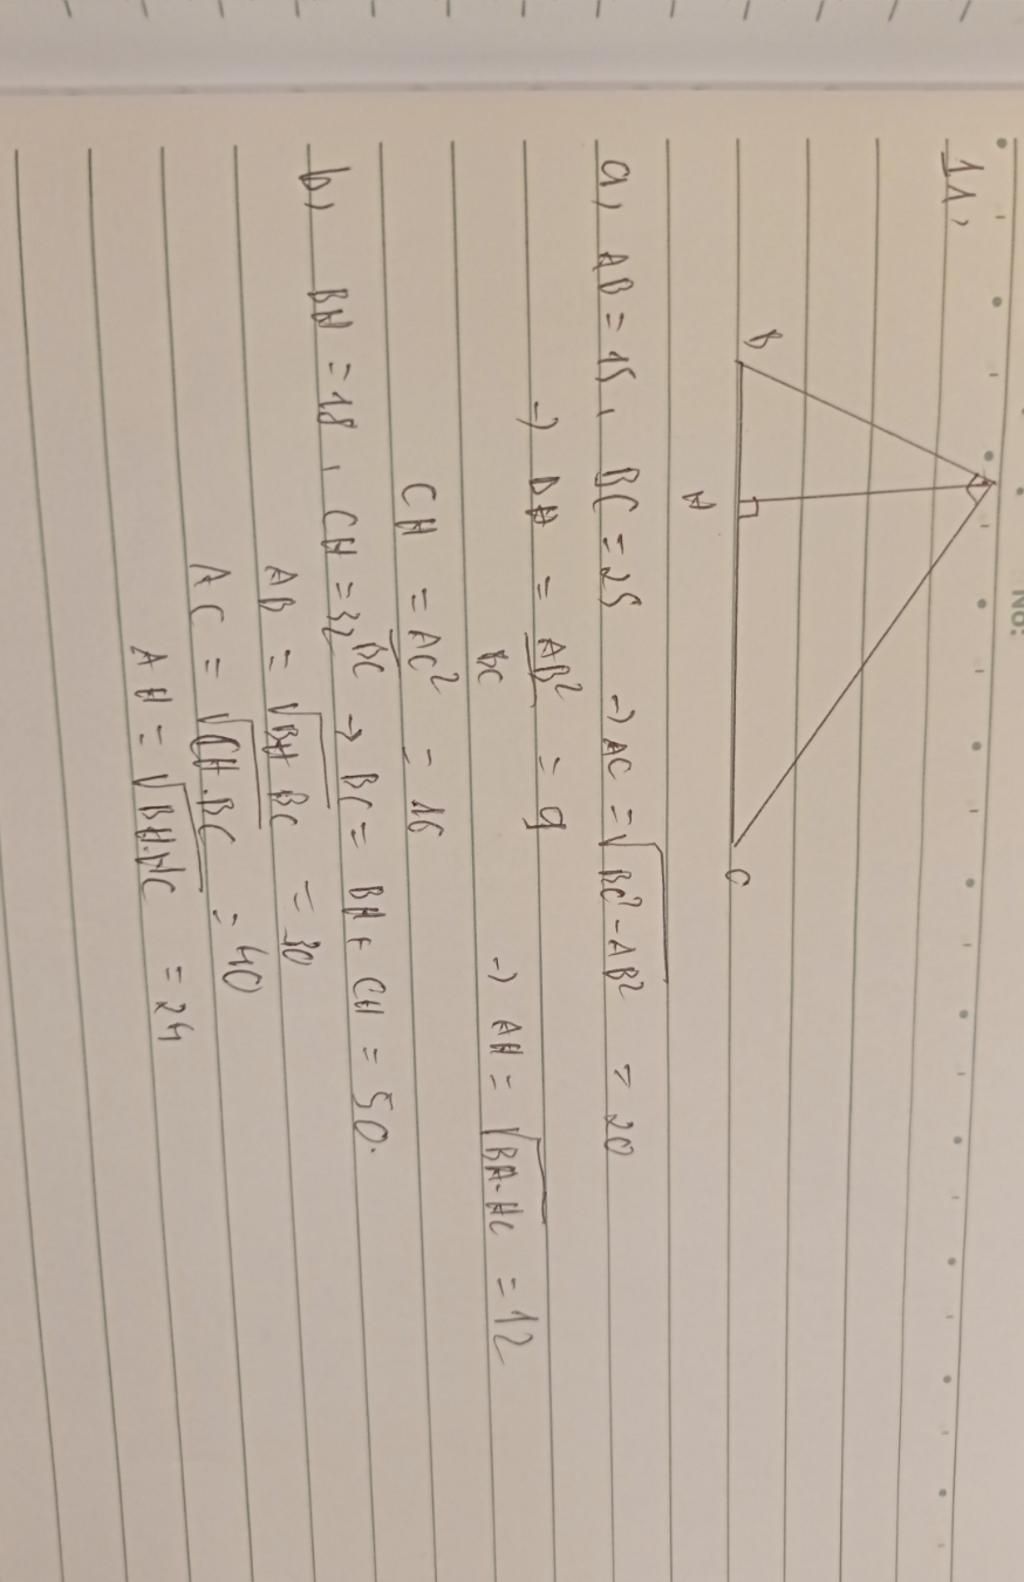 No:
11,
B
H
C
a, AB = 15, BC = 25 → AC = √BC² - AB² = 20
→ BH = AB²/BC = 9 → AH = √BH.HC = 12
CH = AC²/BC = 16
b, BH = 18, CH = 32 → BC = BH + CH = 50.
AB = √BH.BC = 30
AC = √CH.BC = 40
AH = √BH.HC = 24